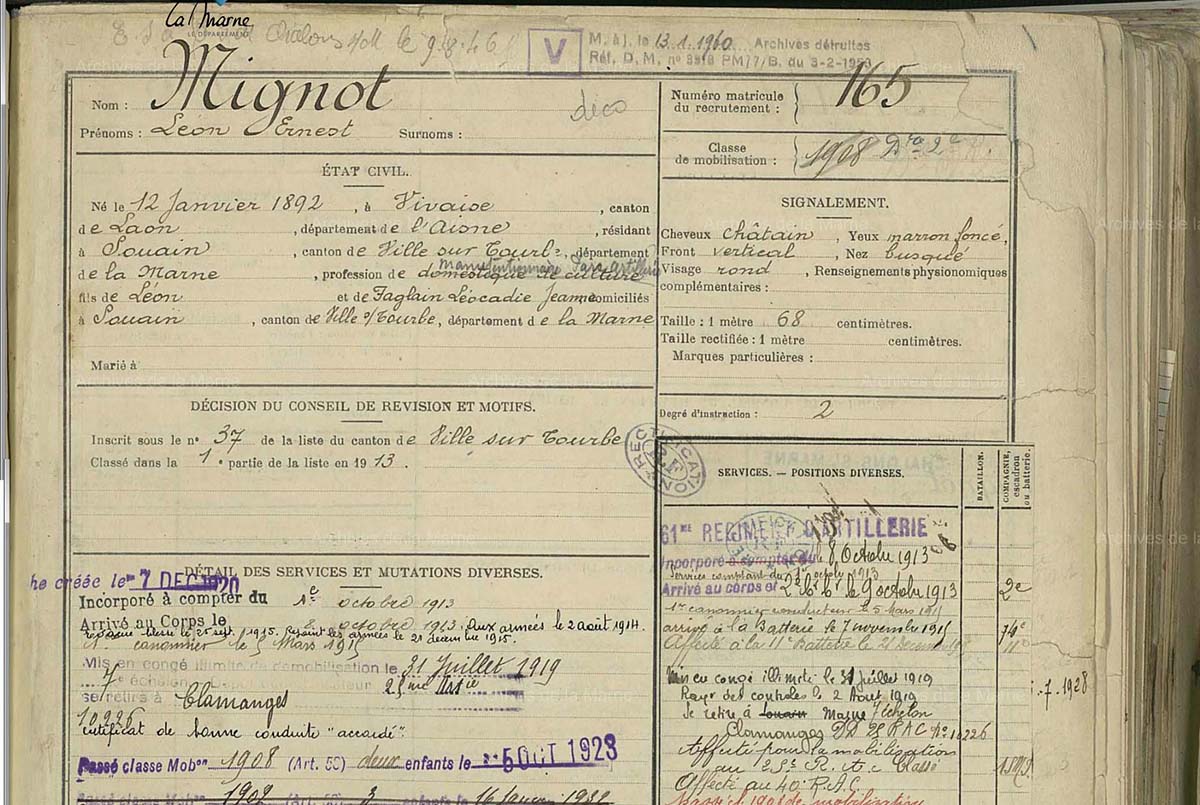 La Marne
LE DÉPARTEMENT
Chalons le 9.8.46
V
M. à j. le 13.1.1960 Archives détruites
Réf. D. M. n° PM/7/B. du 3-2-1953
Nom : Mignot
déco
Prénoms : Léon Ernest Surnoms :
Numéro matricule
du recrutement : 165
Classe
de mobilisation : 1908
ÉTAT CIVIL.
Né le 12 Janvier 1892, à Vivaise, canton
de Laon, département de l'Aisne, résidant
à Souain, canton de Ville sur Tourbe, département
manutentionnaire Parc artillerie
de la Marne, profession de domestique de culture
fils de Léon et de Faglain Léocadie Jeanne domiciliés
à Souain, canton de Ville s/Tourbe, département de la Marne
Marié à
SIGNALEMENT.
Cheveux châtain, Yeux marron foncé,
Front vertical, Nez busqué
Visage rond, Renseignements physionomiques
complémentaires :
Taille : 1 mètre 68 centimètres.
Taille rectifiée : 1 mètre centimètres.
Marques particulières :
Degré d'instruction : 2
DÉCISION DU CONSEIL DE REVISION ET MOTIFS.
Inscrit sous le n° 37 de la liste du canton de Ville sur Tourbe
Classé dans la 1e partie de la liste en 1913.
RECTIFICATION
DÉTAIL DES SERVICES ET MUTATIONS DIVERSES.
he créée le 7 DEC 1920
Incorporé à compter du 1e octobre 1913
Arrivé au Corps le 2 octobre 1913. Aux armées le 2 août 1914.
le 25 sept. 1915. Rejoint les armées le 21 décembre 1915.
canonnier le 5 Mars 1915
Mis en congé illimité de démobilisation le 31 Juillet 1919
7e échelon
se retire à Clamanges
10226
Certificat de bonne conduite "accordé"
Passé classe Mobon 1908 (Art. 58) deux enfants le 5 OCT 1923
Passé classe Mobon 1902 (Art. 58) 3 enfants le 16 Janvier 1932
SERVICES. — POSITIONS DIVERSES.
BATAILLON.
COMPAGNIE,
escadron
ou batterie.
61ME REGIMENT D'ARTILLERIE
Incorporé à compter du 8 Octobre 1913
Services comptant du 1er octobre 1913
Arrivé au corps et 2e C. t. le 9 octobre 1913 2e
1er canonnier conducteur le 5 mars 1915
arrivé à la Batterie le 7 novembre 1915
Affecté à la 11e Batterie le 21 décembre 11e
Mis en congé illimité le 31 juillet 1919
Rayé des controles le 2 Août 1919
Se retire à Souain Marne 7 échelon
Clamanges DD 25 RAC No 10226
Affecté pour la mobilisation
au 25e R.A.C.
Affecté au 40e R.A.C.
Passé cl 1908 de mobilisation
.7.1928